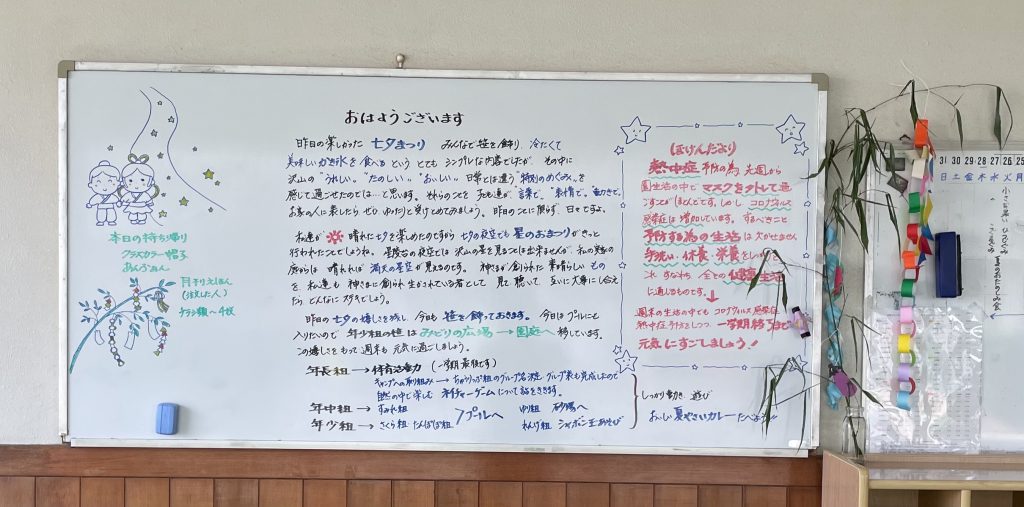 おはようございます
昨日の楽しかった 七夕まつり みんなで笹を飾り、冷たくて
美味しいかき氷を食べる という とても シンプルな内容でしたが、その中に
沢山の "うれしい。" "たのしい。" "おいしい。" 日常とは違う "特別のめぐみ。を
感じて過ごせたのでは…と思います。それらのことを 子ども達が、言葉で、表情で、動きで、
お家の人に表したら ぜひ ゆったりと受けとめてみましょう。昨日のことに限らず、日々ですよ。
私達が 晴れた七夕を楽しめたのですから 七夕の夜空でも 星のおまつりがきっと
行われたことでしょうね。
夜空では 沢山の星を見ることは出来ませんが、私の
からは 晴れれば 満天の星空が見えるのです。 神さまが創られた素晴らしい もの
を、私達も 神さまに創られ 生かされている者として 見て 聴いて 互いに大事にし合え
たら、どんなに ステキでしょう。
昨日の七夕の嬉しさを残し、今日も 笹を飾っておきます。今日はプールにも
入りたいので 年少組の笹は みどりの広場 → 園庭へ 移しています。
この嬉しさをもって 週末も 元気に過ごしましょう。
年長組 → 体育活動 (一学期最後です)
キャンプへの取り組み → ちゅうりっぷ組のグループ名決定 グループ表も完成したので
自然の中で楽しむ ネイチャーゲームについて話をききます。
年中組 → すみれ組 プールへ ゆり組 砂場へ
年少組 → さくら組 たんぽぽ組 れんげ組 シャボン玉あそび
しっかり動き 遊び
おいしい夏やさいカレー たべよう
本日の持ち帰り
クラスカラー帽子
月刊えほん
(注文した人)
チラシ類〜4枚
ほけんだより
熱中症 予防の為、先週から
園生活の中で マスクを外して過
ごすことがほとんどです。しかし コロナウィルス
感染症は 増加しています。するべきこと
予防する為の生活 は 欠かせません
手洗い・休養・栄養をしっかりと
これ すなわち 全ての 健康生活
に通じるものです。
週末の生活の中でも コロナウィルス感染症
熱中症予防をしつつ、一学期終了まで
元気にすごしましょう!
31 30 29 28 27 26 25
日 土 金 木 水 火 月
夏のおたのしみ会